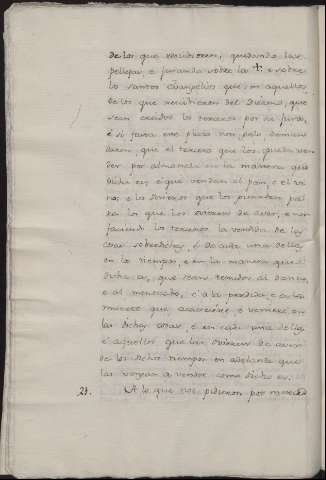 de los que rescibieren, quedando las
pellejas, e jurando sobre la + e sobre
los santos Evangelios que en aquellos
de los que recibieren del Diezmo, que
sean creidos los terceros por su jura,
é si fasta este plazo non pelo demanda
daren, que el tercero que los pueda ven
der por almoneda en la manera que
dicha es, e que vendan el pan, e el vi
no, e los dineros que los puedan
los que los ovieren de aver, e non
faciendo los terceros la vendida de las
cosas sobredichas, é de cada una dellas
en los tiempos, e en la manera que
dicha es, que sean tenudos al danno,
e al menoscabo, é a la perdida, e
que acaeciere, e verniere en
las dichas cosas, e en cada una dellas
é aquellos que las ovieren de aver
de los dichos tiempos en adelante que
las vayan a vender como dicho es.
23. A lo que nos pidieron por merced